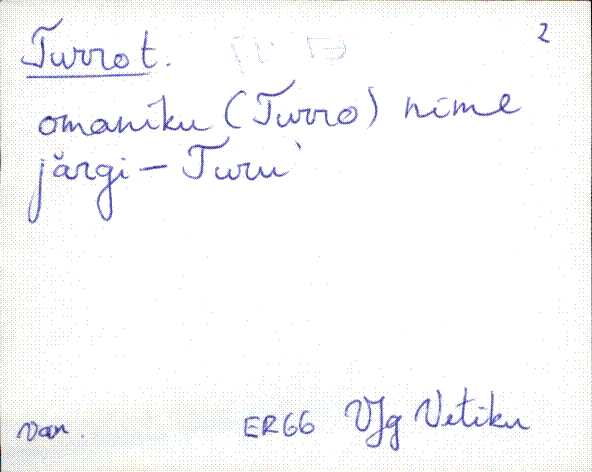 2
Turro t.
omaniku (Turro) nime
järgi – Turu`
Var. ER66 VJg Vetiku